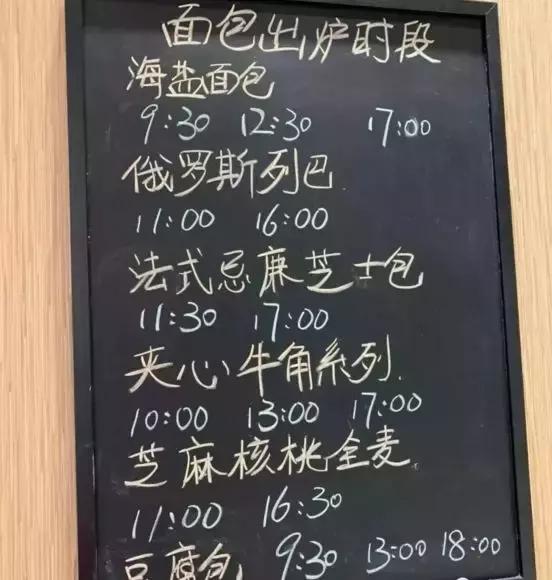 面包出炉时段
海盐面包
9:30 12:30 17:00
俄罗斯列巴
11:00 16:00
法式忌廉芝士包
11:30 17:00
夹心牛角系列.
10:00 13:00 17:00
芝麻核桃全麦
11:00 16:30
豆腐包 9:30 13:00 18:00